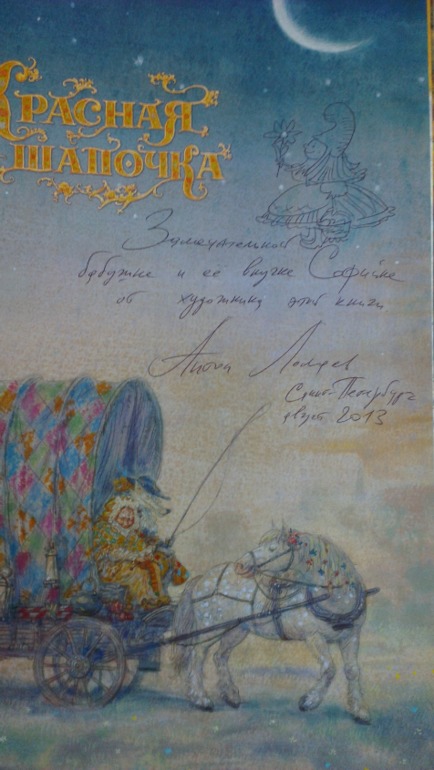 КРАСНАЯ
ШАПОЧКА
Замечательной
бабушке и ее внучке Софийке
от художника этой книги
Антон Ломаев
Санкт-Петербург
август 2013